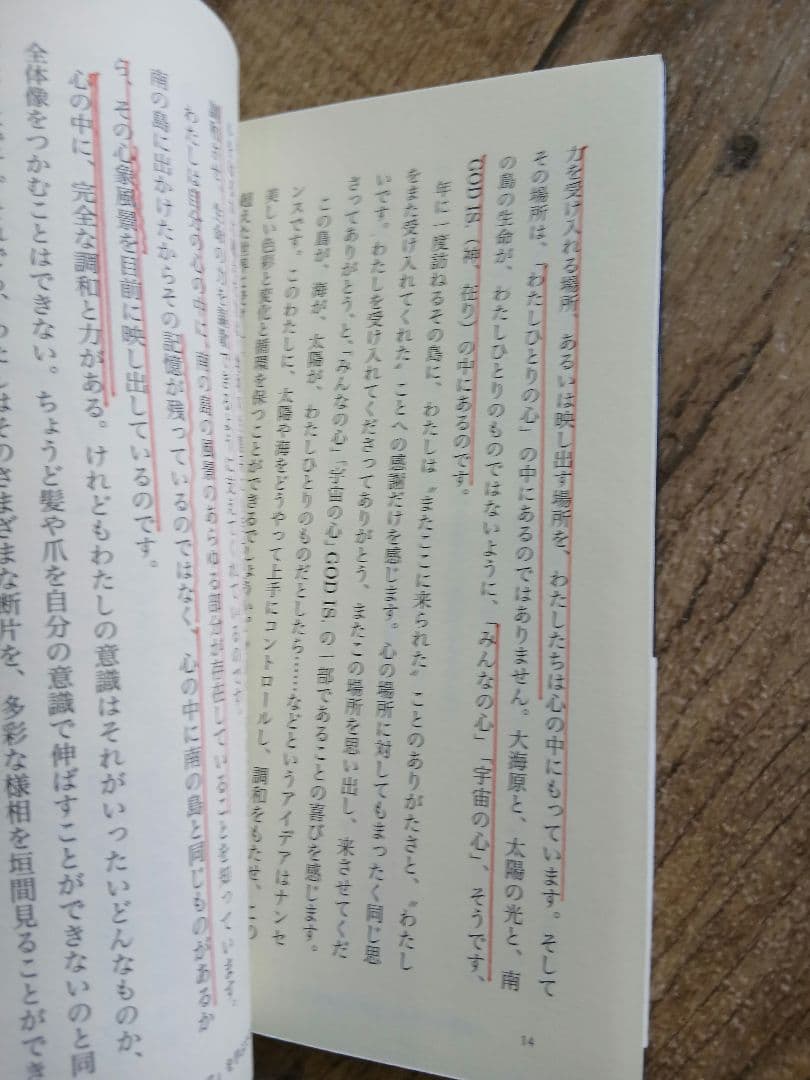 力を受け入れる場所、あるいは映し出す場所を、わたしたちは心の中にもっています。そして
その場所は、「わたしひとりの心」の中にあるのではありません。大海原と、太陽の光と、南
の島の生命が、わたしひとりのものではないように、「みんなの心」「宇宙の心」、そうです、
GOD IS.（神、在り）の中にあるのです。
年に一度訪ねるその島に、わたしは〝またここに来られた〟ことのありがたさと、〝わたし
をまた受け入れてくれた〟ことへの感謝だけを感じます。心の場所に対してもまったく同じ思
いです。わたしを受け入れてくださってありがとう、またこの場所を思い出し、来させてくだ
さってありがとう、と、「みんなの心」「宇宙の心」GOD IS. の一部であることの喜びを感じます。
この島が、海が、太陽が、わたしひとりのものだとしたら……などというアイデアはナンセ
ンスです。このわたしに、太陽や海をどうやって上手にコントロールし、調和をもたせ、この
美しい色彩と変化と循環を保つことができるでしょう
14
わたしは自分の心の中に、南の島の風景のあらゆる部分が存在していることを知っています。
南の島に出かけたからその記憶が残っているのではなく、心の中に南の島と同じものがあるか
ら、その心象風景を目前に映し出しているのです。
心の中に、完全な調和と力がある。けれどもわたしの意識はそれがいったいどんなものか、
全体像をつかむことはできない。ちょうど髪や爪を自分の意識で伸ばすことができないのと同
それでも、わたしはそのさまざまな断片を、多彩な様相を垣間見ることができ